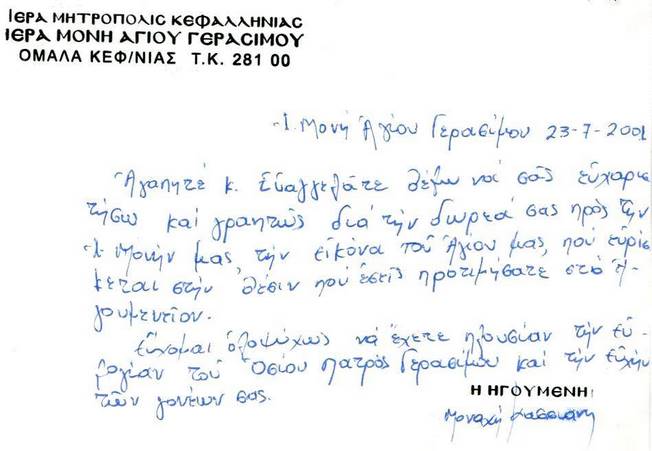 ΙΕΡΑ ΜΗΤΡΟΠΟΛΙΣ ΚΕΦΑΛΛΗΝΙΑΣ
ΙΕΡΑ ΜΟΝΗ ΑΓΙΟΥ ΓΕΡΑΣΙΜΟΥ
ΟΜΑΛΑ ΚΕΦ/ΝΙΑΣ Τ.Κ. 281 00
Ἱ. Μονή Ἁγίου Γερασίμου 23-7-2001
Ἀγαπητέ κ. Εὐαγγελάτε θέλω νά σᾶς εὐχαρισ
τήσω καί γραπτῶς διά τήν δωρεά σας πρός τήν
Ἱ. Μονήν μας, τήν εἰκόνα τοῦ Ἁγίου μας, πού εὑρίσ
κεται στήν θέσιν πού ἐσεῖς προτιμήσατε στό Ἡ-
γουμενεῖον.
Εὔχομαι ὁλοψύχως νά ἔχετε πλουσίαν τήν εὐ-
λογίαν τοῦ Ὁσίου Πατρός Γερασίμου καί τήν εὐχήν
τῶν γονέων σας.
Η ΗΓΟΥΜΕΝΗ
Μοναχή